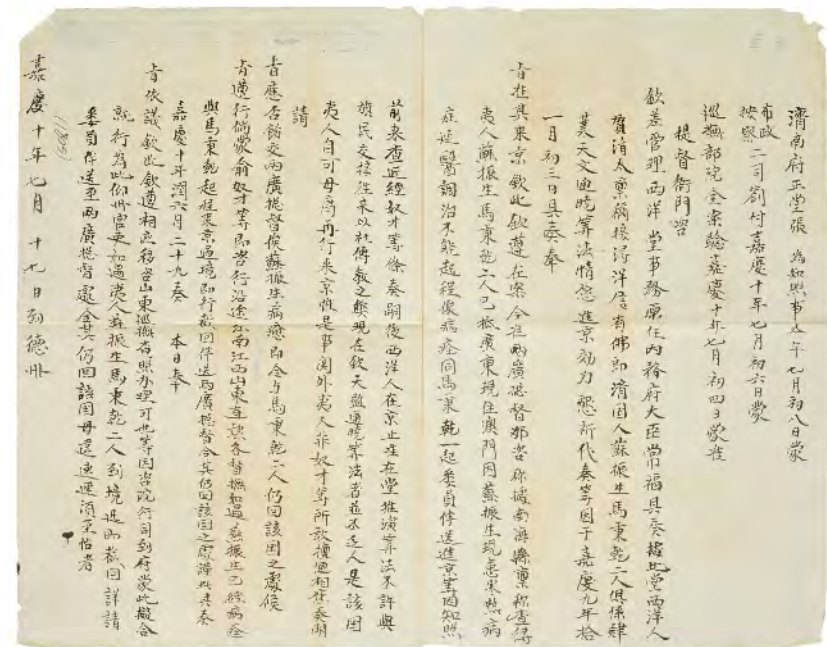 濟南府正堂張 為知照事迄年七月初八日蒙
布政
按察二司劄付嘉慶十年七月初六日蒙
巡撫部院全案驗嘉慶十年七月初四日蒙准
提督衙門咨
欽差管理西洋堂事務原任內務府大臣常福具奏據北堂西洋人
賀清太稟稱接得洋信有佛郎濟國人蘇振生馬秉乾二人俱係肄
業天文通曉算法情愿進京効力懇祈代奏等因于嘉慶九年拾
一月初三日具奏奉
旨准其來京欽此欽遵在案今准兩廣總督那咨称據南海縣稟称查得
夷人蘇振生馬秉乾二人已抵廣東現住澳門因蘇振生現患寒熱病
症延醫調治不能起程俟病痊同馬秉乾一起委員伴送進京等因知照
前來查近經奴才等條奏嗣後西洋人在京止准在堂推演算法不許與
旗民交接往來以杜傳教之弊現在欽天監通曉算法者並不乏人是該國
夷人自可毋庸再行來京惟是事關外夷人非奴才等所敢擅便相應奏明
請
旨應否飭交兩廣總督俟蘇振生病癒即令与馬秉乾二人仍回該國之處候
旨遵行倘蒙俞允奴才等即咨行沿途江南江西山東直隸各督撫如遇蘇振生已經病痊
與馬秉乾起程來京過境即行截回伴送兩廣總督令其仍回該國之處謹此具奏
嘉慶十年潤六月二十九奏 本日奉
旨依議欽此欽遵相應移咨山東巡撫者照办理可也等因咨院行司到府蒙此擬合
就行為此仰州官吏如遇夷人蘇振生馬秉乾二人到境迅即截回詳請
委員伴送至兩廣總督處令其仍回該國毋違速速須至帖者
嘉慶十年七月 十九日到德州